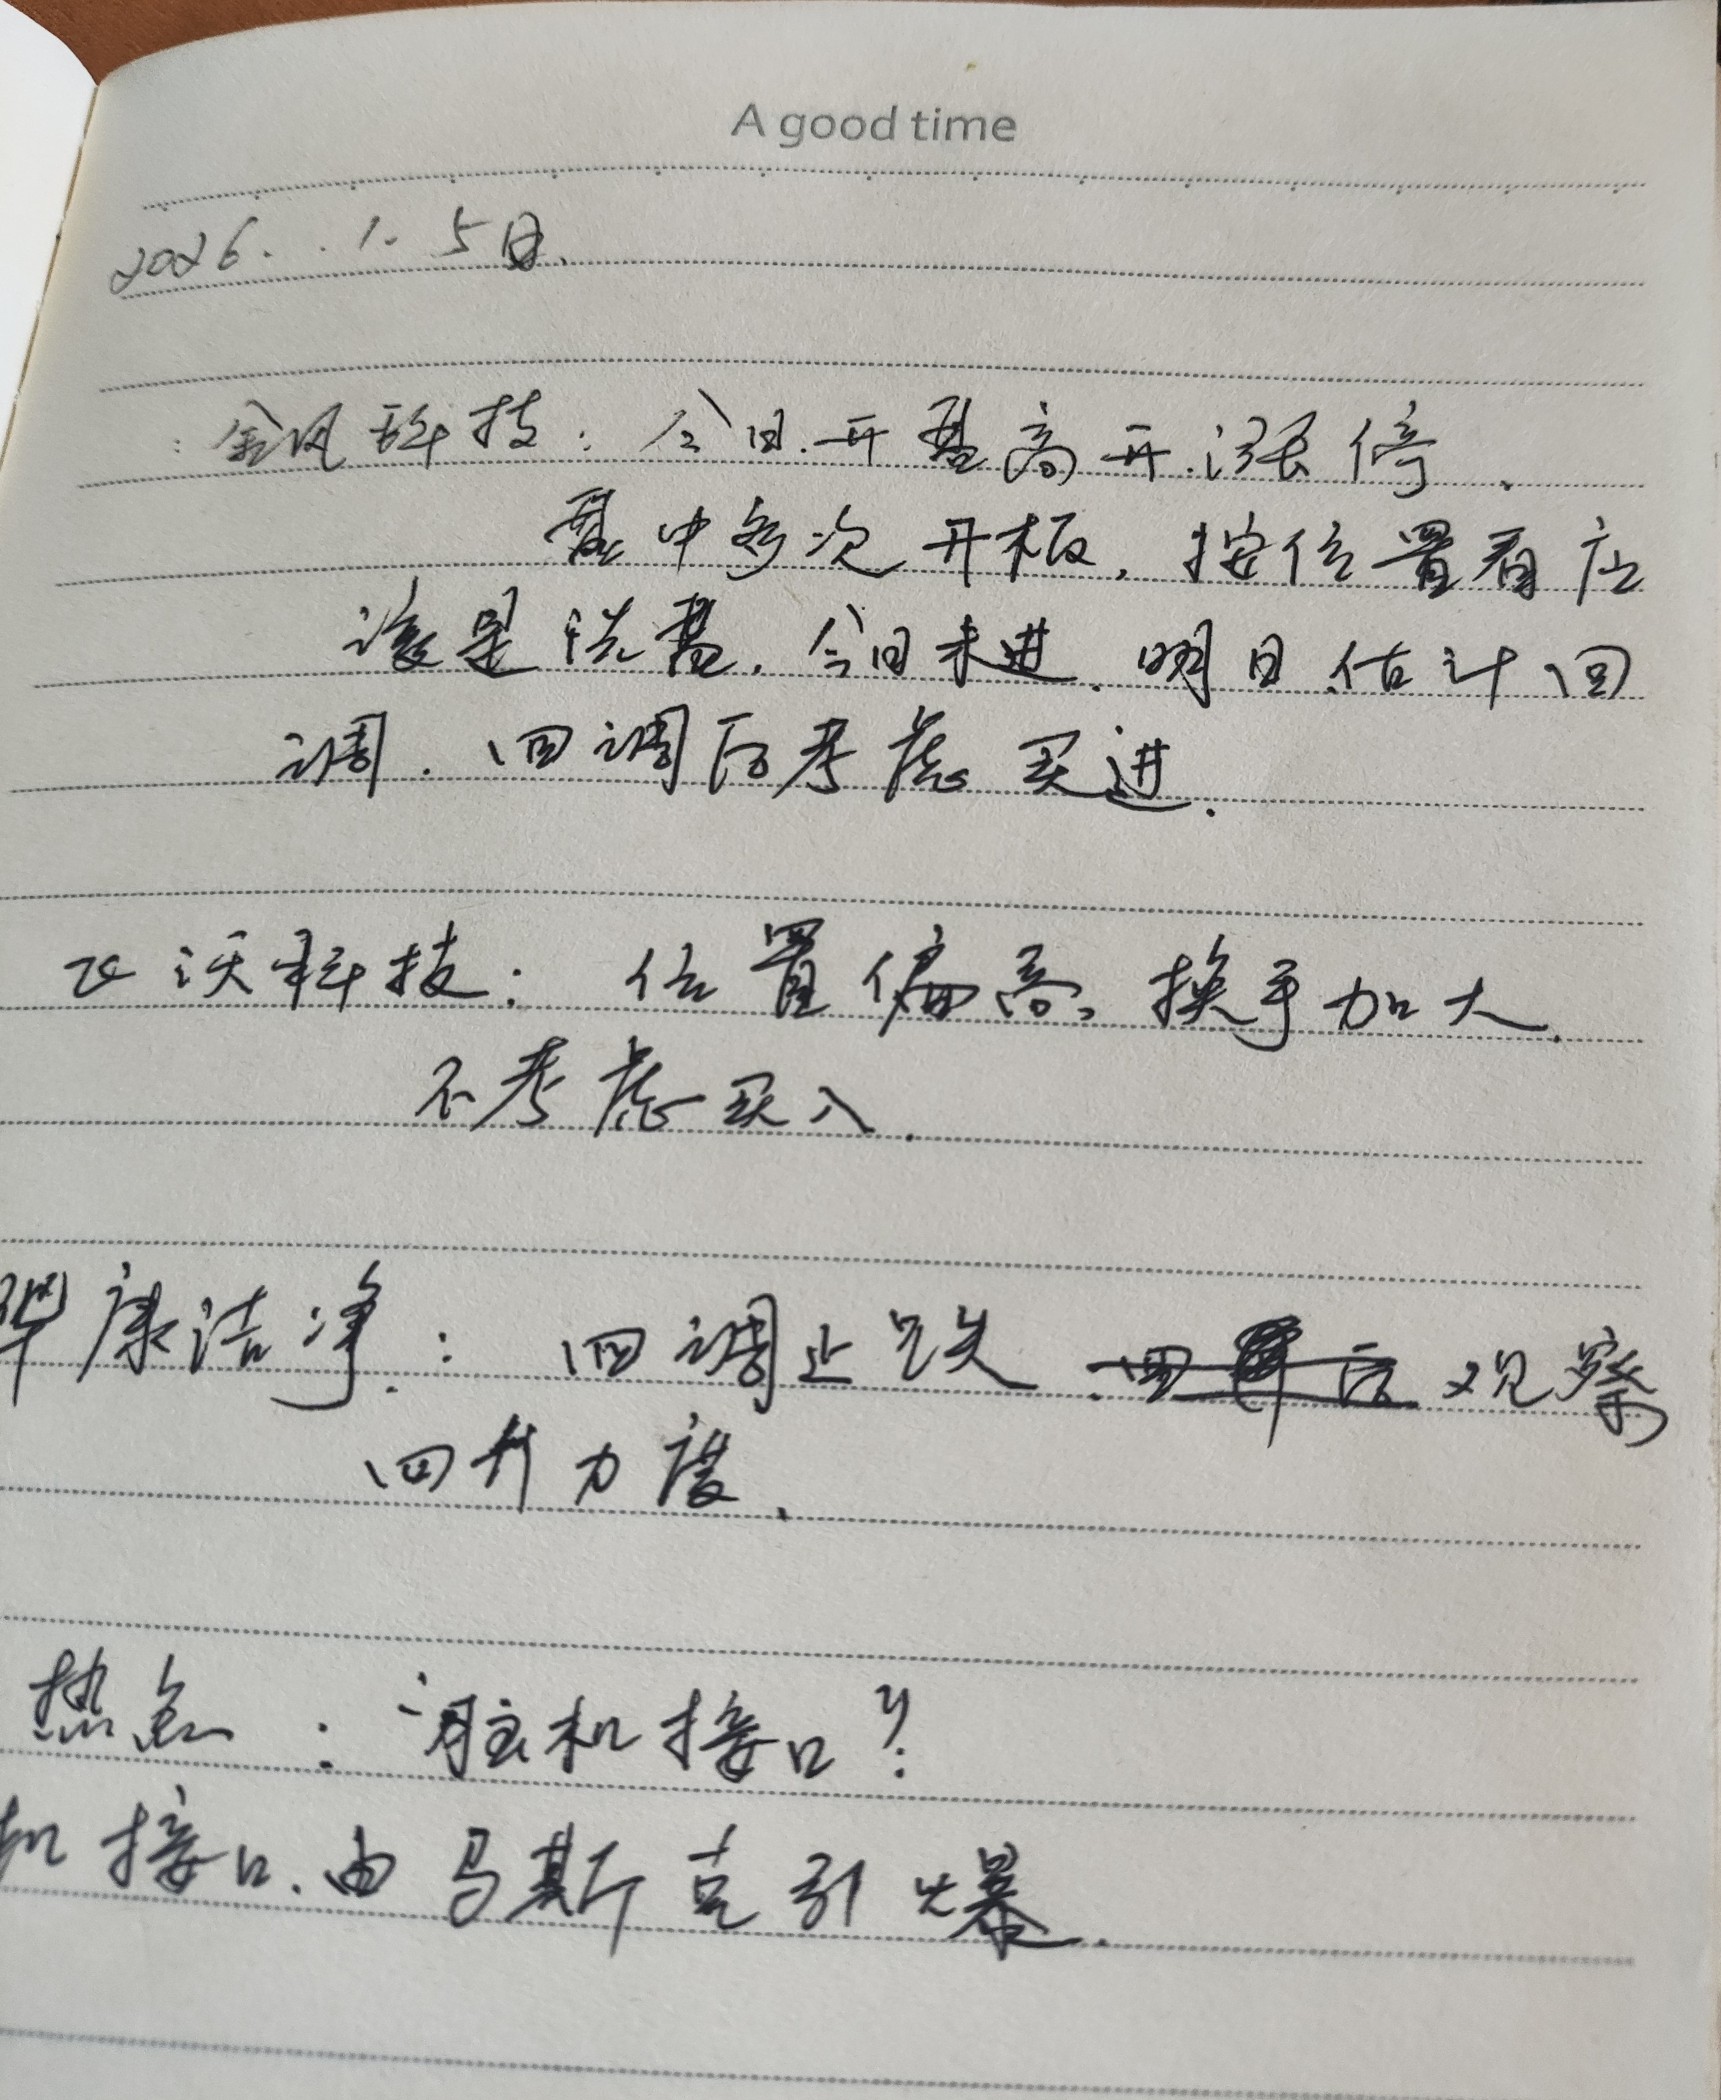 A good time
2026. .1. 5日.
:金风科技:今日.开盘高开.涨停.
盘中多次开板,按位置看应
该是洗盘.今日未进.明日.估计回
调.回调后考虑买进.
飞沃科技:位置偏高、换手加大.
不考虑买入.
华康洁净:回调止跌.观察
回升力度.
热点:脑机接口?
机接口.由马斯克引爆.